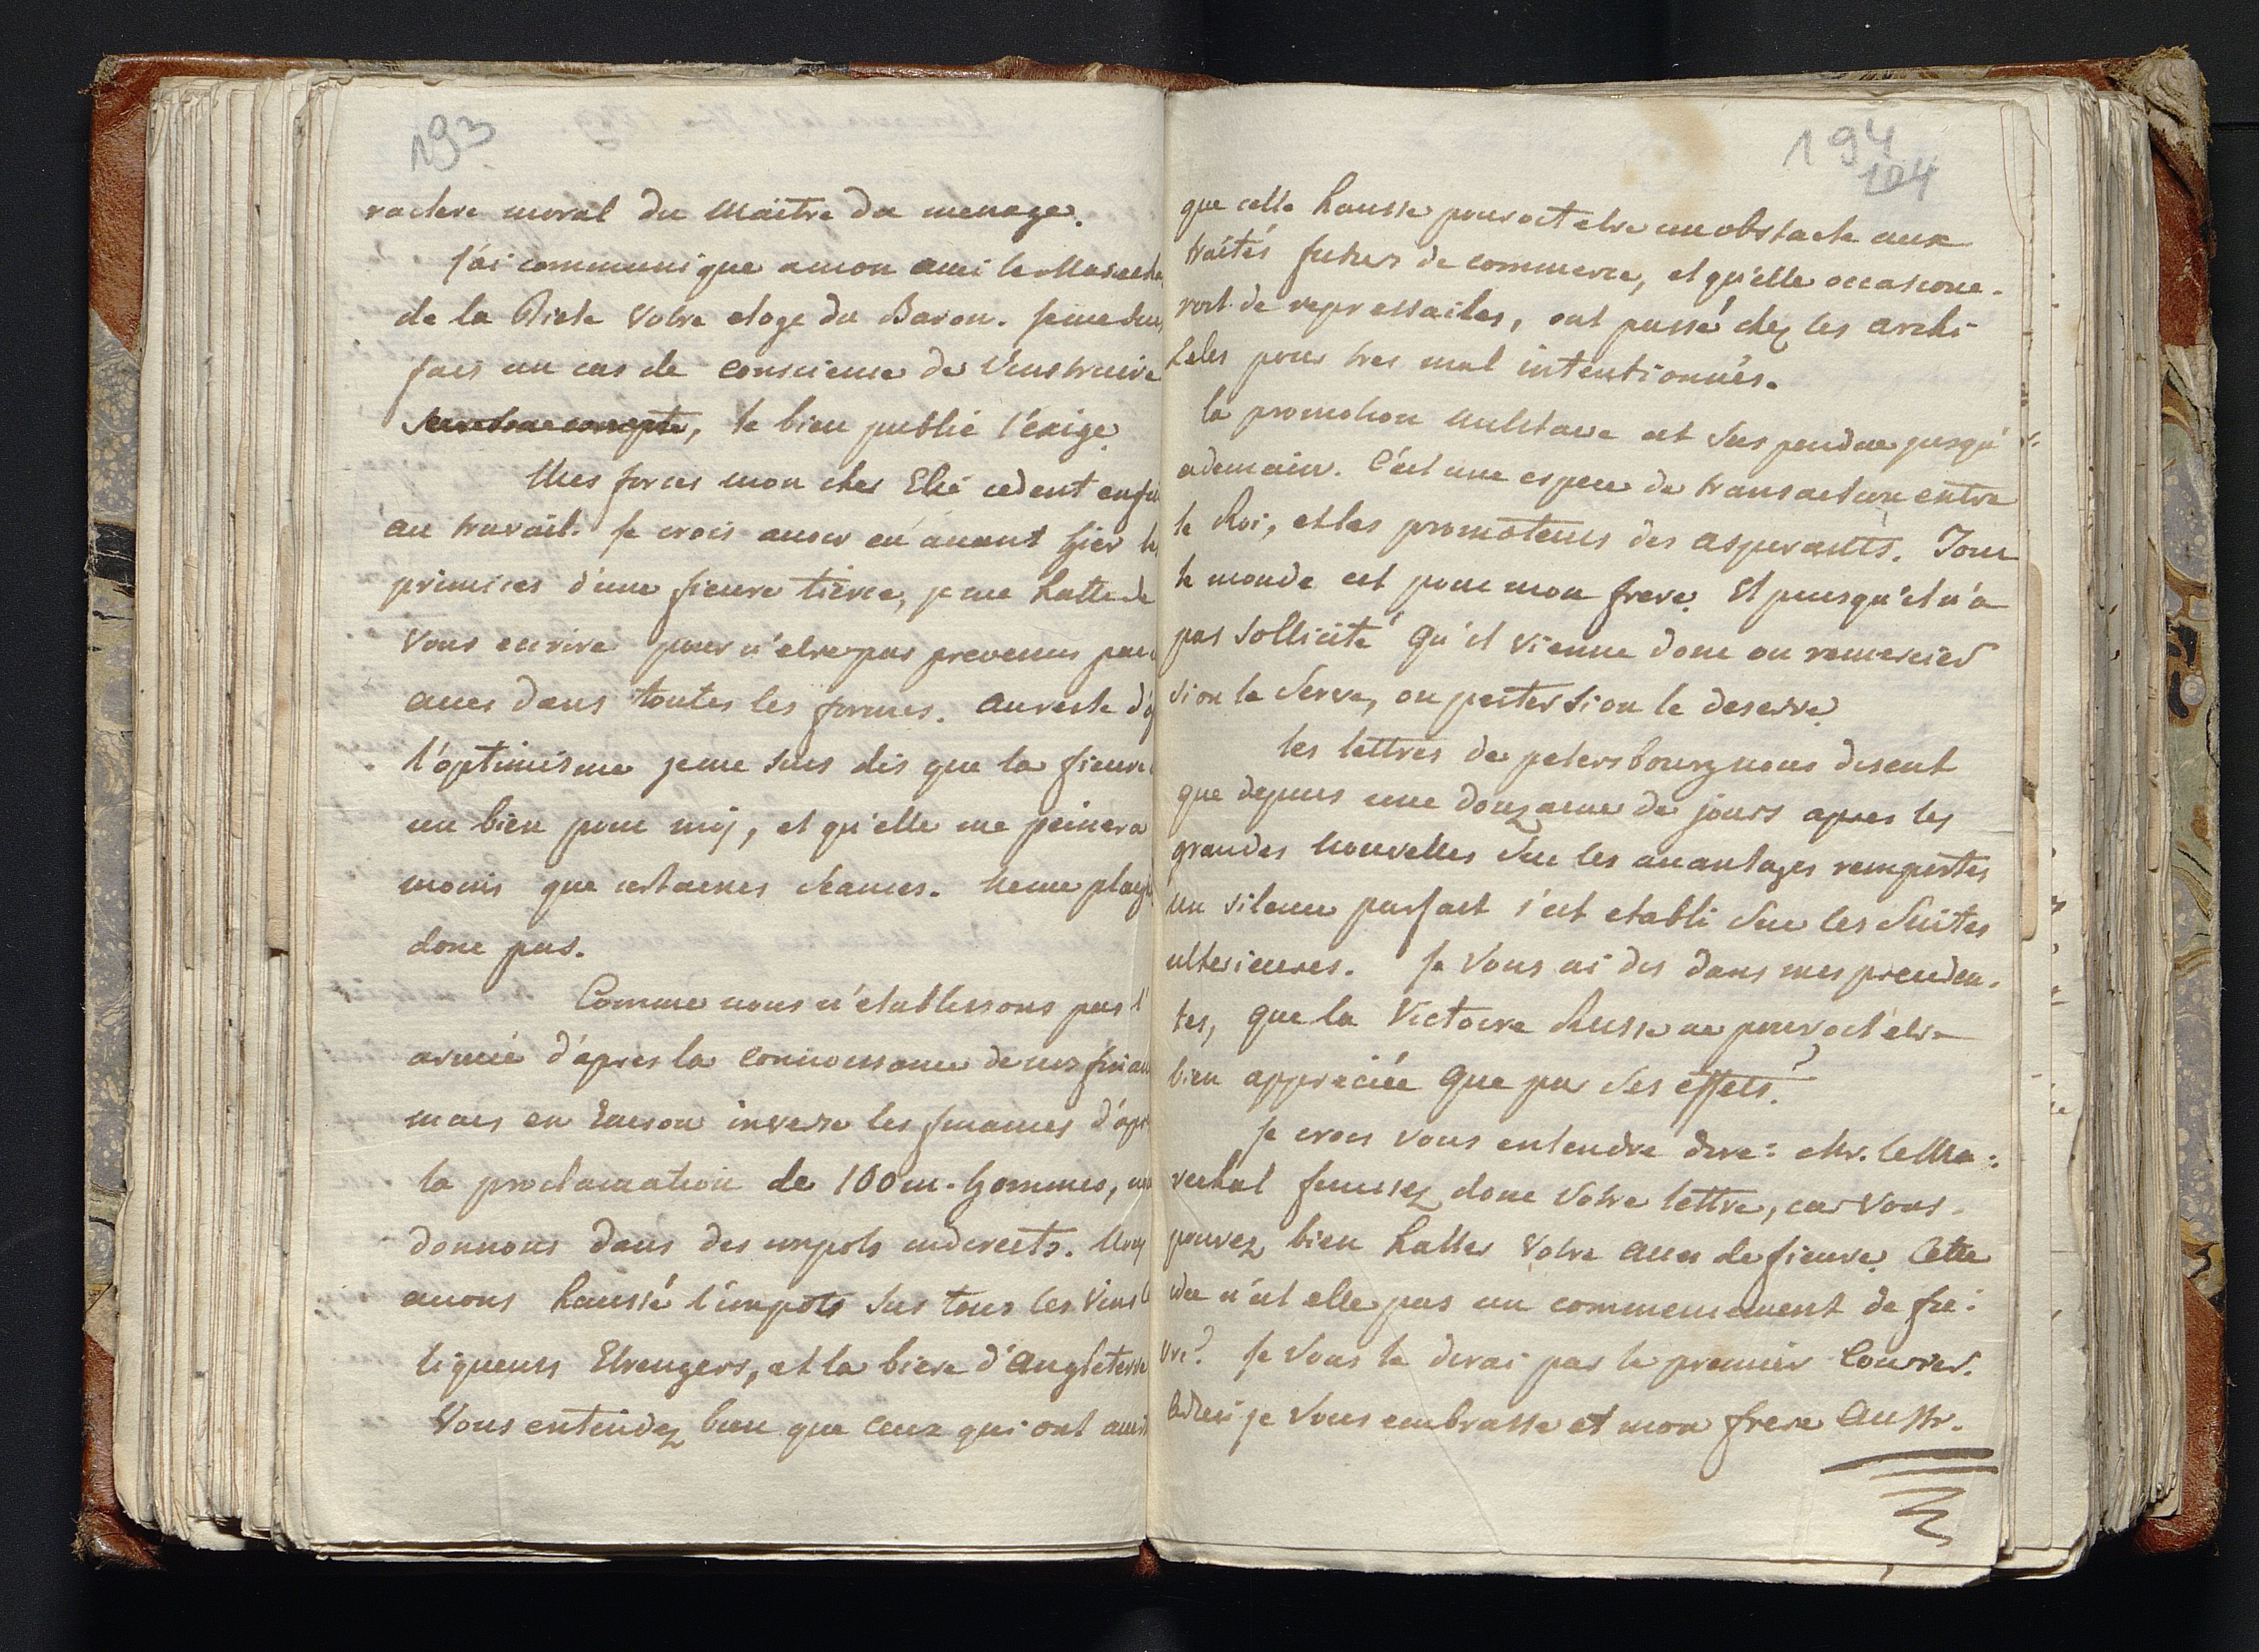 193
ractere moral du Maitre du menage.
J'ai communiqué a mon ami le Marecha
de la Diete Votre eloge du Baron. Je me suis
fais un cas de conscience de l'instruire
sur son compte, le bien public l'éxige.
Mes forces mon cher Elié cedent enfin
au travail. Je crois avoir eû avant hier les
primices d'une fievre tièrce, je me hatte de
Vous ecrire pour n'etre pas prevenus par
acces dans toutes les formes. Au reste d'a
l'optimisme je me suis dis que la fievre
un bien pour mój, et qu'elle me peinera
moins que certaines seances. Ne me plaig
donc pas.
Comme nous n'etablissons pas l'
armée d'apres la connoissance de nos finan
mais en raison inverse les finances d'apr
la proclamation de 100 m. hommes, nous
donnons dans des impots indirects. Nous
avons haussé l'impots sur tous les Vins
liqueurs Etrangers, et la biere d'Angleterre
Vous entendez bien que ceux qui ont avert
194
104
que cette hausse pouvoit etre un obstacle aux
traités futurs de commerce, et qu'elle occasione-
roit de repressailes, ont passé chez les archi-
zelés pour tres mal intentionnés.
la promotion militaire est suspendue jusqu'
a demain. C'est une espece de transaction entre
le Roi, et les promoteurs des aspirants. Tout
le monde est pour mon frere. Et puisqu'il n'a
pas sollicité qu'il vienne donc ou remercier
si on le serve, ou pester si on le deserve.
les lettres de petersbourg nous disent
que depuis une douzaine de jours apres les
grandes nouvelles sur les avantages remportés
un silence parfait s'est etabli sur les suites
ulterieures. Je Vous ai dis dans mes preceden-
tes, que la Victoire Russe ne pouvoit etre
bien appreciée que par ses effets.
Je crois vous entendre dire: Mr. le Ma:
rechal finissez donc Votre lettre, car Vous
pouvez bien hatter Votre acces de fievre. Cette
idée n'est elle pas un commencement de fie:
vre? Je Vous le dirai par le premier Courier.
Adieu je Vous embrasse et mon frere Austr.